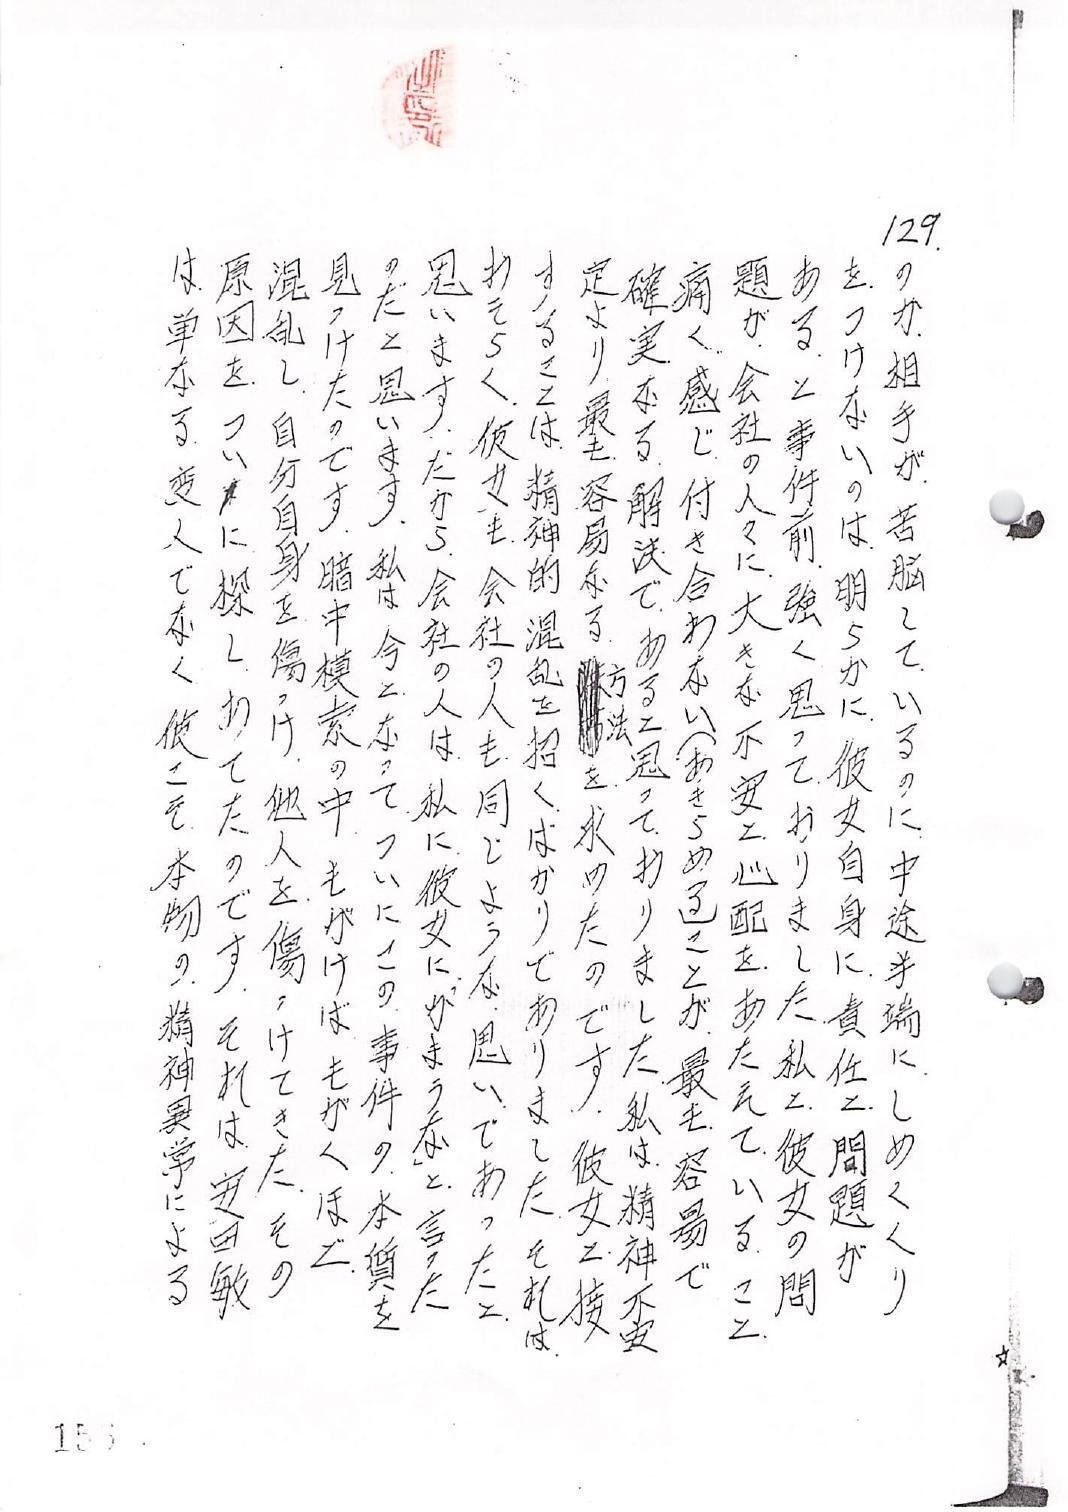 129.
のか、相手が、苦脳して、いるのに、中途半端にしめくくり
をつけないのは、明らかに、彼女自身に、責任と、問題が
ある、と事件前、強く思って、おりました、私と、彼女の問
題が、会社の人々に、大きな不安と、心配を、あたえて、いる、こと、
痛く、感じ、付き合わない(あきらめる)ことが、最も、容易で
確実なる、解決で、あると思って、おりました、私は、精神不安
定より、最も、容易なる、方法を、求めたのです、彼女と、接
することは、精神的、混乱を、招く、ばかりでありました、それは、
おそらく、彼女も、会社の人も、同じような、思い、であったと、
思います、だから、会社の人は、私に、彼女に、かまうな」と、言った
のだと思います、私は、今と、なって、ついに、この、事件の、本質を
見つけたのです、暗中模索の中、もがけば、もがくほど、
混乱し、自分自身を、傷つけ、他人を、傷つけてきた、その
原因を、ついに、探し、あてたのです、それは、安田敏
は、単なる、変人でなく、彼こそ、本物の、精神異常による